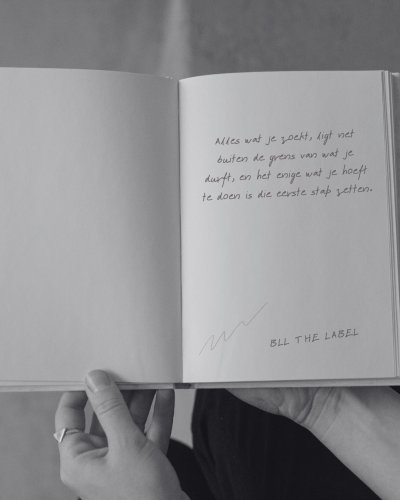 Alles wat je zoekt, ligt net
buiten de grens van wat je
durft, en het enige wat je hoeft
te doen is die eerste stap zetten.
BLL THE LABEL